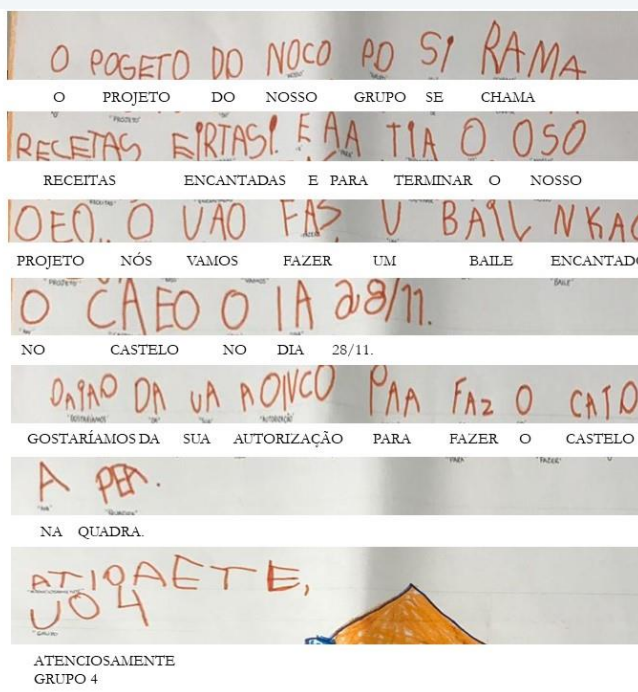 O POGETO DO NOCO PO SI RAMA
O PROJETO DO NOSSO GRUPO SE CHAMA
RECETAS EIRTASI. E AA TIA O OSO
RECEITAS ENCANTADAS E PARA TERMINAR O NOSSO
OEO.. O VAO FAS U BAIL NKAO
PROJETO NÓS VAMOS FAZER UM BAILE ENCANTADO
O CAEO O IA 28/11.
NO CASTELO NO DIA 28/11.
DAIAO DA UA AOIVCO PAA FAZ O CATO
GOSTARÍAMOS DA SUA AUTORIZAÇÃO PARA FAZER O CASTELO
A PEA.
NA QUADRA.
ATIOAETE,
UO 4
"GRUPO"
ATENCIOSAMENTE
GRUPO 4